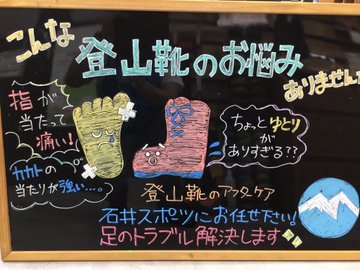 こんな
登山靴のお悩み
ありませんか
指が
当たって
痛い!
カカトの
当たりが強い…。
ちょっとゆとり
がありすぎる??
登山靴のアフターケア
石井スポーツにお任せ下さい!
足のトラブル解決します!!